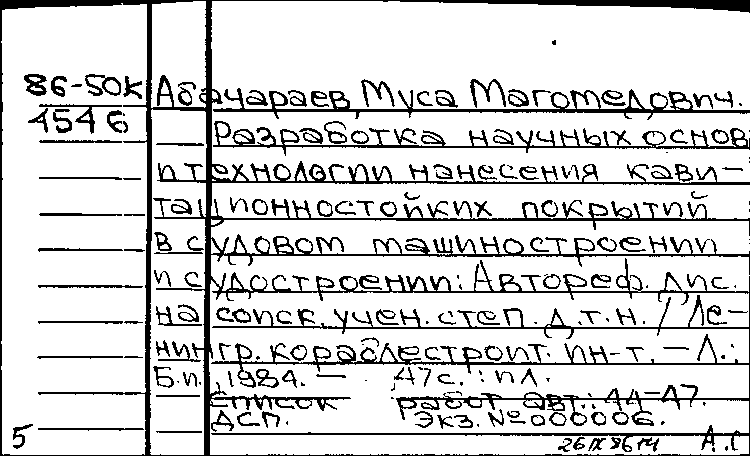 86-50К Абачараев Муса Магомедович.
1546 Разработка научных основ
и технологии нанесения кави-
тационностойких покрытий
в судовом машиностроении
и судостроении: Автореф. дис.
на соиск. учен. степ. д.т.н. / Ле-
нингр. кораблестроит. ин-т. — Л.:
Б.и., 1984. — 47с.: ил.
Список работ авт.: 44-47.
ДСП. Экз. №000006.
5 26 IX 86 А.С